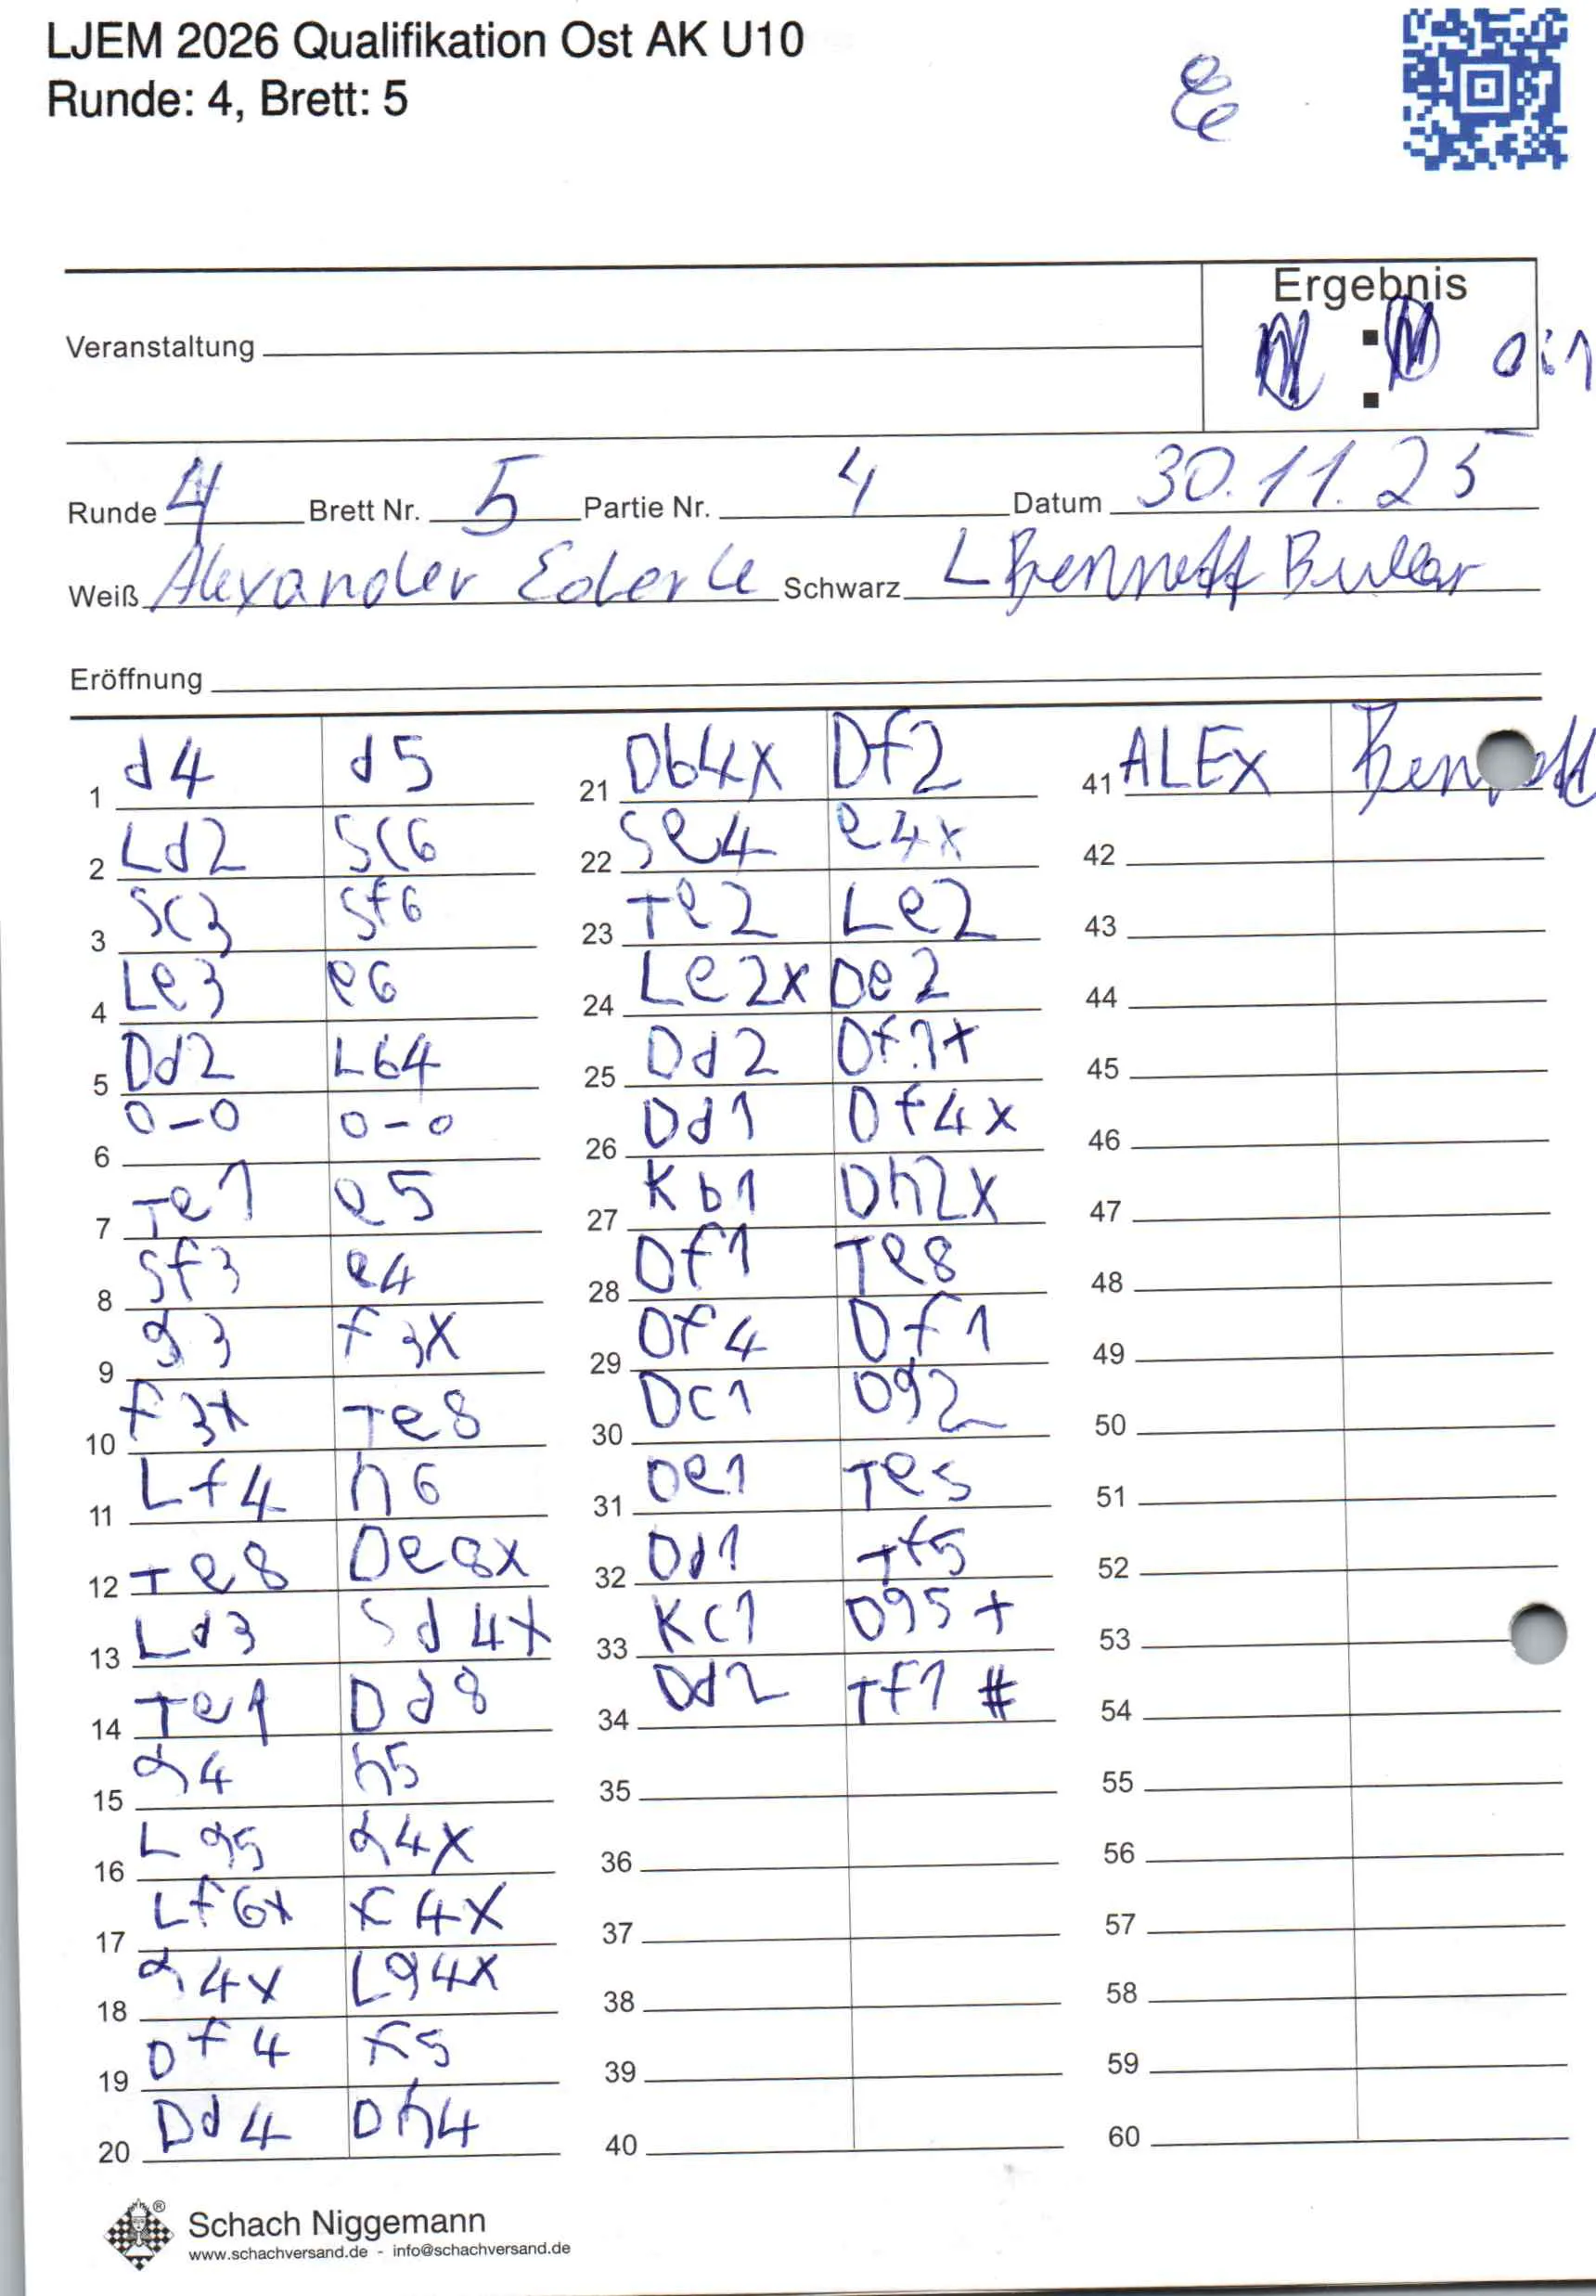 LJEM 2026 Qualifikation Ost AK U10
Runde: 4, Brett: 5
Ergebnis
Veranstaltung : 0:1
Runde 4 Brett Nr. 5 Partie Nr. 4 Datum 30.11.25
Weiß Alexander Ederle Schwarz L Bennett
Eröffnung
1 d4 d5
2 Ld2 Sc6
3 Sc3 Sf6
4 Le3 e6
5 Dd2 Lb4
6 0-0 0-0
7 Te1 e5
8 Sf3 e4
9 g3 f3x
10 f3x Te8
11 Lf4 h6
12 Te8 De8x
13 Ld3 Sd4x
14 Te1 Dd8
15 g4 h5
16 Lg5 g4x
17 Lf6x f4x
18 g4x Lg4x
19 Df4 f5
20 Dd4 Dh4
21 Db4x Df2
22 Se4 e4x
23 Te2 Le2
24 Le2x De2
25 Dd2 Df1+
26 Dd1 Df4x
27 Kb1 Dh2x
28 Df1 Te8
29 Df4 Df1
30 Dc1 Dg2
31 De1 Te5
32 Dd1 Tf5
33 Kc1 Dg5+
34 Dd2 Tf1#
35
36
37
38
39
40
41 ALEX Bennett
42
43
44
45
46
47
48
49
50
51
52
53
54
55
56
57
58
59
60
Schach Niggemann
www.schachversand.de - info@schachversand.de